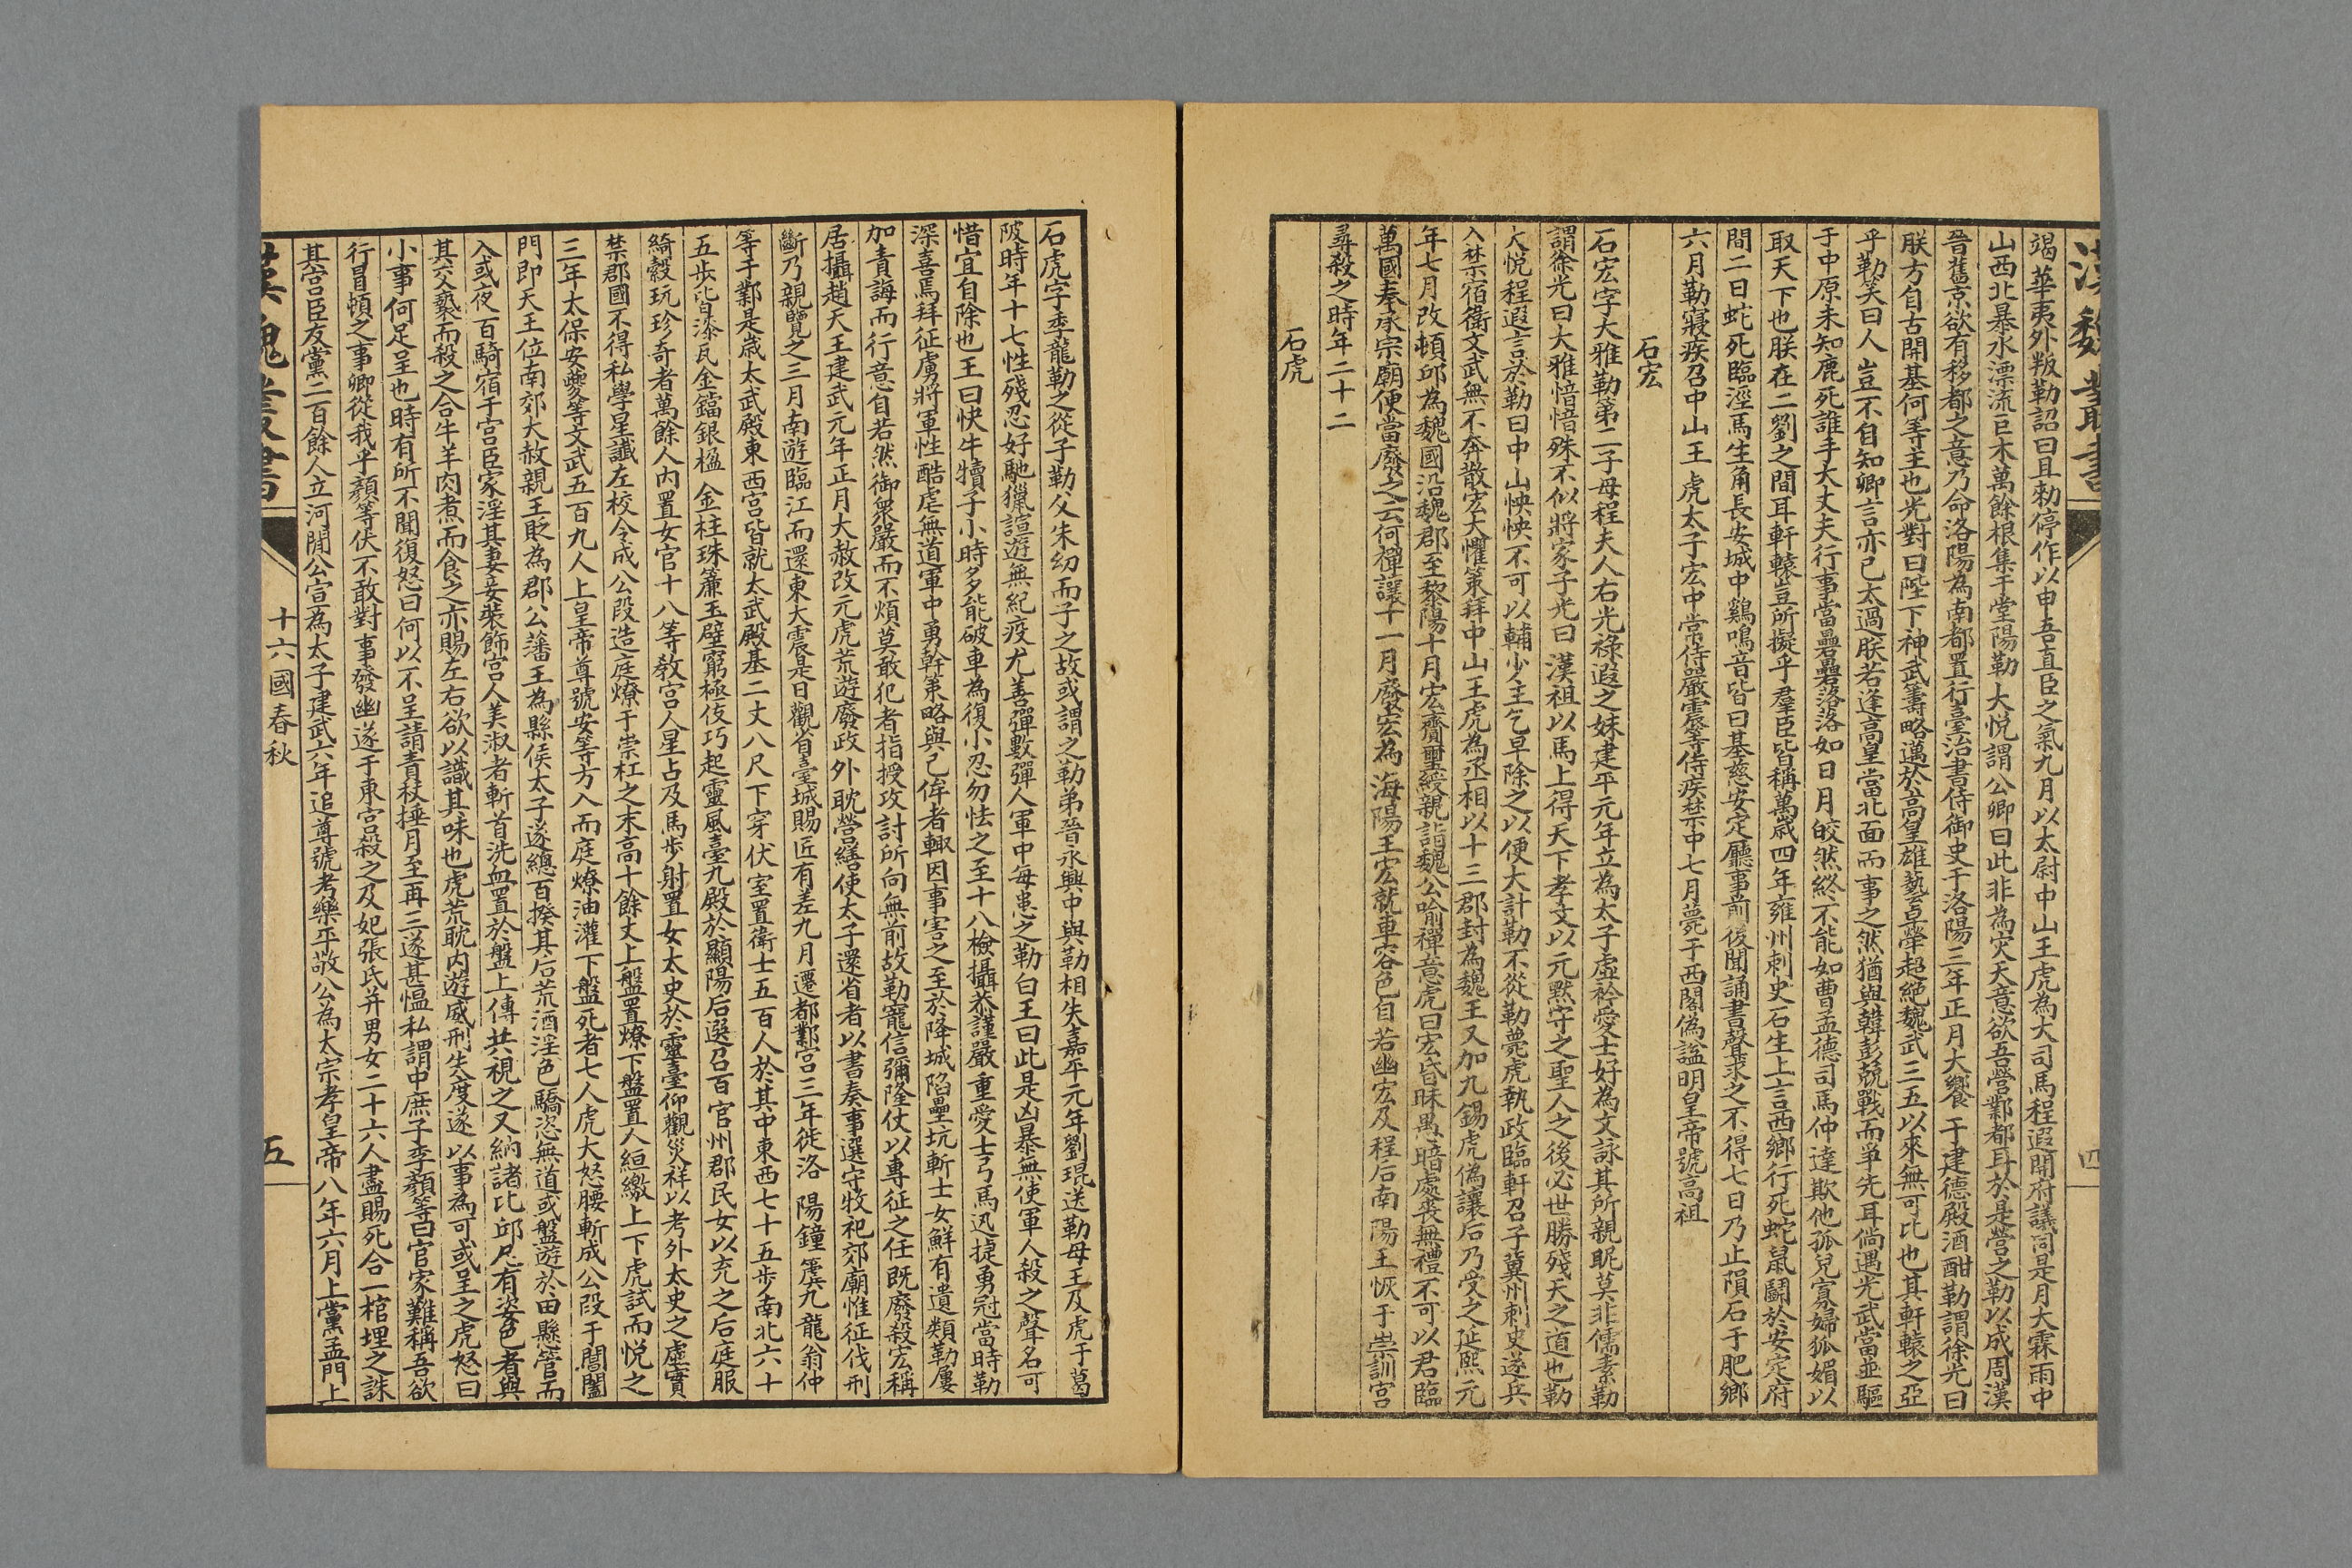 漢魏叢書
四
竭華夷外叛勒詔曰且勑停作以申吾直臣之氣九月以太尉中山王虎為大司馬程遐開府議同是月大霖雨中
山西北暴水漂流巨木萬餘根集于堂陽勒大悅謂公卿曰此非為灾天意欲吾營鄴都耳於是營之勒以成周漢
晉舊京欲有移都之意乃命洛陽為南都置行臺治書侍御史于洛陽三年正月大饗于建德殿酒酣勒謂徐光曰
朕方自古開基何等主也光對曰陛下神武籌略邁於高皇雄藝卓犖超絶魏武三五以來無可比也其軒轅之亞
乎勒笑曰人豈不自知卿言亦已太過朕若逢高皇當北面而事之然猶與韓彭競戰而爭先耳倘遇光武當並驅
于中原未知鹿死誰手大丈夫行事當礨礨落落如日月皎然終不能如曹孟德司馬仲達欺他孤兒寡婦狐媚以
取天下也朕在二劉之間耳軒轅豈所擬乎羣臣皆稱萬歲四年雍州刺史石生上言西鄉行死蛇鼠鬭於安定府
間二日蛇死臨涇馬生角長安城中鷄鳴音皆曰基慈安定廳事前後聞誦書聲求之不得七日乃止隕石于肥鄉
六月勒寢疾召中山王虎太子宏中常侍嚴震等侍疾禁中七月薨于西閣偽謚明皇帝號高祖
石宏
石宏字大雅勒第二子母程夫人右光祿遐之妹建平元年立為太子虛衿愛士好為文詠其所親昵莫非儒素勒
謂徐光曰大雅愔愔殊不似將家子光曰漢祖以馬上得天下孝文以元默守之聖人之後必世勝殘天之道也勒
大悅程遐言於勒曰中山怏怏不可以輔少主乞早除之以便大計勒不從勒薨虎執政臨軒召子冀州刺史邃兵
入禁宿衛文武無不奔散宏大懼策拜中山王虎為丞相以十三郡封為魏王又加九錫虎偽讓后乃受之延熙元
年七月改頓邱為魏國沿魏郡至黎陽十月宏齎璽綬親詣魏公喻禪意虎曰宏昏昧愚暗處喪無禮不可以君臨
萬國奉承宗廟便當廢之云何禪讓十一月廢宏為海陽王宏就車容色自若幽宏及程后南陽王恢于崇訓宮
尋殺之時年二十二
石虎
石虎字季龍勒之從子勒父朱幼而子之故或謂之勒弟晉永興中與勒相失嘉平元年劉琨送勒母王及虎于葛
陂時年十七性殘忍好馳獵諠遊無紀疫尤善彈數彈人軍中每患之勒白王曰此是凶暴無使軍人殺之聲名可
惜宜自除也王曰快牛犢子小時多能破車為復小忍勿怯之至十八檢攝恭謹嚴重愛士弓馬迅捷勇冠當時勒
深喜焉拜征虜將軍性酷虐無道軍中勇幹策略與己侔者輒因事害之至於降城陷壘坑斬士女鮮有遺類勒屢
加責誨而行意自若然御衆嚴而不煩莫敢犯者指授攻討所向無前故勒寵信彌隆仗以專征之任既廢殺宏稱
居攝趙天王建武元年正月大赦改元虎荒遊廢政外耽營繕使太子還省者以書奏事選守牧祀郊廟惟征伐刑
斷乃親覽之三月南遊臨江而還東大震是日觀省臺城賜匠有差九月遷都鄴宮三年徙洛陽鐘簴九龍翁仲
等于鄴是歲太武殿東西宮皆就太武殿基二丈八尺下穿伏室置衛士五百人於其中東西七十五步南北六十
五步皆漆瓦金鐺銀楹金柱珠簾玉壁窮極伎巧起靈風臺九殿於顯陽后選召百官州郡民女以充之后庭服
綺縠玩珍奇者萬餘人內置女官十八等敎宮人星占及馬步射置女太史於靈臺仰觀災祥以考外太史之虛實
禁郡國不得私學星讖左校令成公段造庭燎于崇杠之末高十餘丈上盤置燎下盤置人絙繳上下虎試而悅之
三年太保安夔等文武五百九人上皇帝尊號安等方入而庭燎油灌下盤死者七人虎大怒腰斬成公段于閶闔
門即天王位南郊大赦親王貶為郡公藩王為縣侯太子遂總百揆其后荒酒淫色驕恣無道或盤遊於田懸管而
入或夜百騎宿于宮臣家淫其妻妾裝飾宮人美淑者斬首洗血置於盤上傳共視之又納諸比邱尼有姿色者與
其交褻而殺之合牛羊肉煮而食之亦賜左右欲以識其味也虎荒耽內遊威刑失度遂以事為可或呈之虎怒曰
小事何足呈也時有所不聞復怒曰何以不呈誚責秩捶月至再三遂甚慍私謂中庶子李顏等曰官家難稱吾欲
行冒頓之事卿從我乎顏等伏不敢對事發幽遂于東宮殺之及妃張氏并男女二十六人盡賜死合一棺埋之誅
其宮臣友黨二百餘人立河間公宣為太子建武六年追尊號考樂平敬公為太宗孝皇帝八年六月上黨孟門上
漢魏叢書
十六國春秋
五